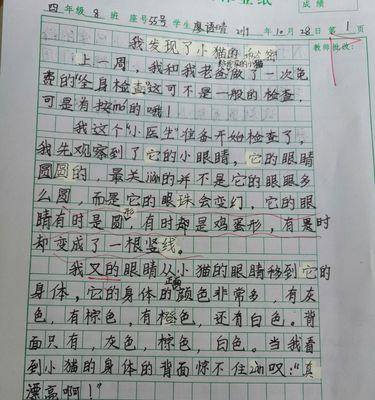 成绩
四年级 8 班 座号55号 学生 廖语晴 2019年10月28日 第1页
教师批改:
我发现了小猫的秘密
给爸爸的小猫
上一周,我和我老爸做了一次免
费的"全身检查"这可不是一般的检查,
可是有按mó的哦!
我这个"小医生"准备开始检查了,
我先观察到了它的小眼睛,它的眼睛
圆圆的,最关jiàn的并不是它的眼睛多
么圆,而是它的眼珠会变幻,它的眼
睛有时是圆形,有时却是鸡蛋形,有是时
却变成了一根竖线。
我又的眼睛从小猫的眼睛移到它的
身体,它的身体的颜色非常多,有灰
色,有棕色,有橙色,还有白色。背
面只有,灰色,棕色,白色。当我看
到小猫的身体的背面惊不住zàn叹:"真
漂亮啊!"